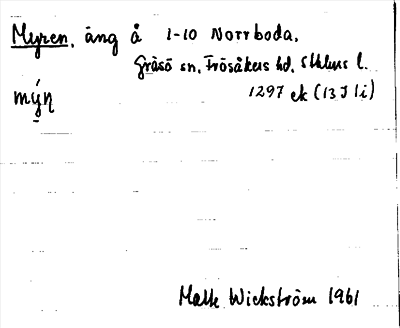 Myren, äng å 1-10 Norrboda,
Gräsö sn, Frösåkers hd, Sthlms l.
mýn̥ 1297 ek (13J li)
Matts Wickström 1961